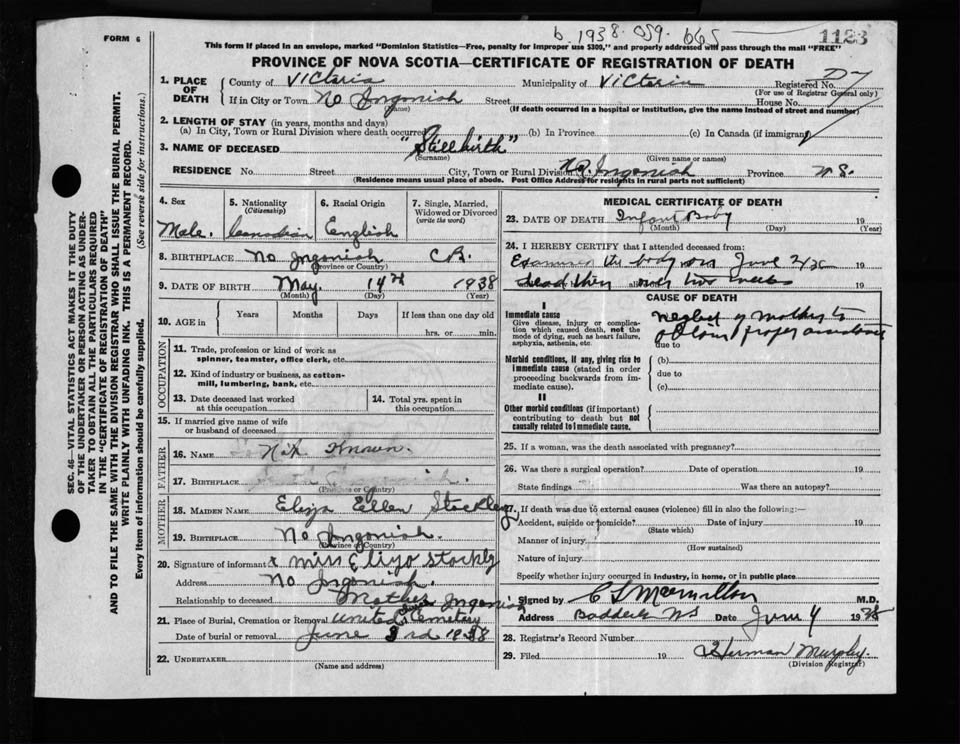 b. 1938. 059. 665
1123
FORM 6
This form if placed in an envelope, marked "Dominion Statistics—Free, penalty for improper use $300," and properly addressed will pass through the mail "FREE"
PROVINCE OF NOVA SCOTIA—CERTIFICATE OF REGISTRATION OF DEATH
1. PLACE OF DEATH
County of Victoria Municipality of Victoria Registered No. D7
(For use of Registrar General only)
If in City or Town No Ingonish Street House No.
(Name) (If death occurred in a hospital or institution, give the name instead of street and number)
2. LENGTH OF STAY (in years, months and days)
(a) In City, Town or Rural Division where death occurred (b) In Province (c) In Canada (if immigrant)
3. NAME OF DECEASED "Stillbirth"
(Surname) (Given name or names)
RESIDENCE No. Street City, Town or Rural Division No. Ingonish Province N S.
(Residence means usual place of abode. Post Office Address for residents in rural parts not sufficient)
4. Sex 5. Nationality (Citizenship) 6. Racial Origin 7. Single, Married, Widowed or Divorced (write the word)
Male. Canadian English
8. BIRTHPLACE No Ingonish C B.
(Province or Country)
9. DATE OF BIRTH May. 14th 1938
(Month) (Day) (Year)
10. AGE in Years Months Days If less than one day old
hrs. or min.
OCCUPATION
11. Trade, profession or kind of work as spinner, teamster, office clerk, etc.
12. Kind of industry or business, as cotton-mill, lumbering, bank, etc.
13. Date deceased last worked at this occupation
14. Total yrs. spent in this occupation
15. If married give name of wife or husband of deceased
FATHER
16. NAME Not Known.
17. BIRTHPLACE
(Province or Country)
MOTHER
18. MAIDEN NAME Eliza Ellen Stockley
19. BIRTHPLACE No Ingonish.
(Province or Country)
20. Signature of informant x Miss Eliza Stockly
Address No Ingonish.
Relationship to deceased Mother
21. Place of Burial, Cremation or Removal United Cemetary Ingonish
Date of burial or removal June 3rd 1938
22. UNDERTAKER
(Name and address)
MEDICAL CERTIFICATE OF DEATH
23. DATE OF DEATH Infant Baby 19
(Month) (Day) (Year)
24. I HEREBY CERTIFY that I attended deceased from:
Examined the body on June 19
dead then over two weeks 19
CAUSE OF DEATH
I
Immediate cause
Give disease, injury or complication which caused death, not the mode of dying, such as heart failure, asphyxia, asthenia, etc.
neglect of mother to
obtain proper
due to
Morbid conditions, if any, giving rise to immediate cause (stated in order proceeding backwards from immediate cause).
(b)
due to
(c)
II
Other morbid conditions (if important) contributing to death but not causally related to immediate cause.
25. If a woman, was the death associated with pregnancy?
26. Was there a surgical operation? Date of operation 19
State findings Was there an autopsy?
27. If death was due to external causes (violence) fill in also the following:—
Accident, suicide or homicide? Date of injury 19
(State which)
Manner of injury
(How sustained)
Nature of injury
Specify whether injury occurred in industry, in home, or in public place
Signed by C L Macmillan M.D.
Address Baddeck NS Date June 4 1938
28. Registrar's Record Number
29. Filed 19 Herman Murphy.
(Division Registrar)
SEC. 46—VITAL STATISTICS ACT MAKES IT THE DUTY
OF THE UNDERTAKER OR PERSON ACTING AS UNDER-
TAKER TO OBTAIN ALL THE PARTICULARS REQUIRED
IN THE "CERTIFICATE OF REGISTRATION OF DEATH"
AND TO FILE THE SAME WITH THE DIVISION REGISTRAR WHO SHALL ISSUE THE BURIAL PERMIT.
WRITE PLAINLY WITH UNFADING INK. THIS IS A PERMANENT RECORD.
Every item of information should be carefully supplied. (See reverse side for instructions.)